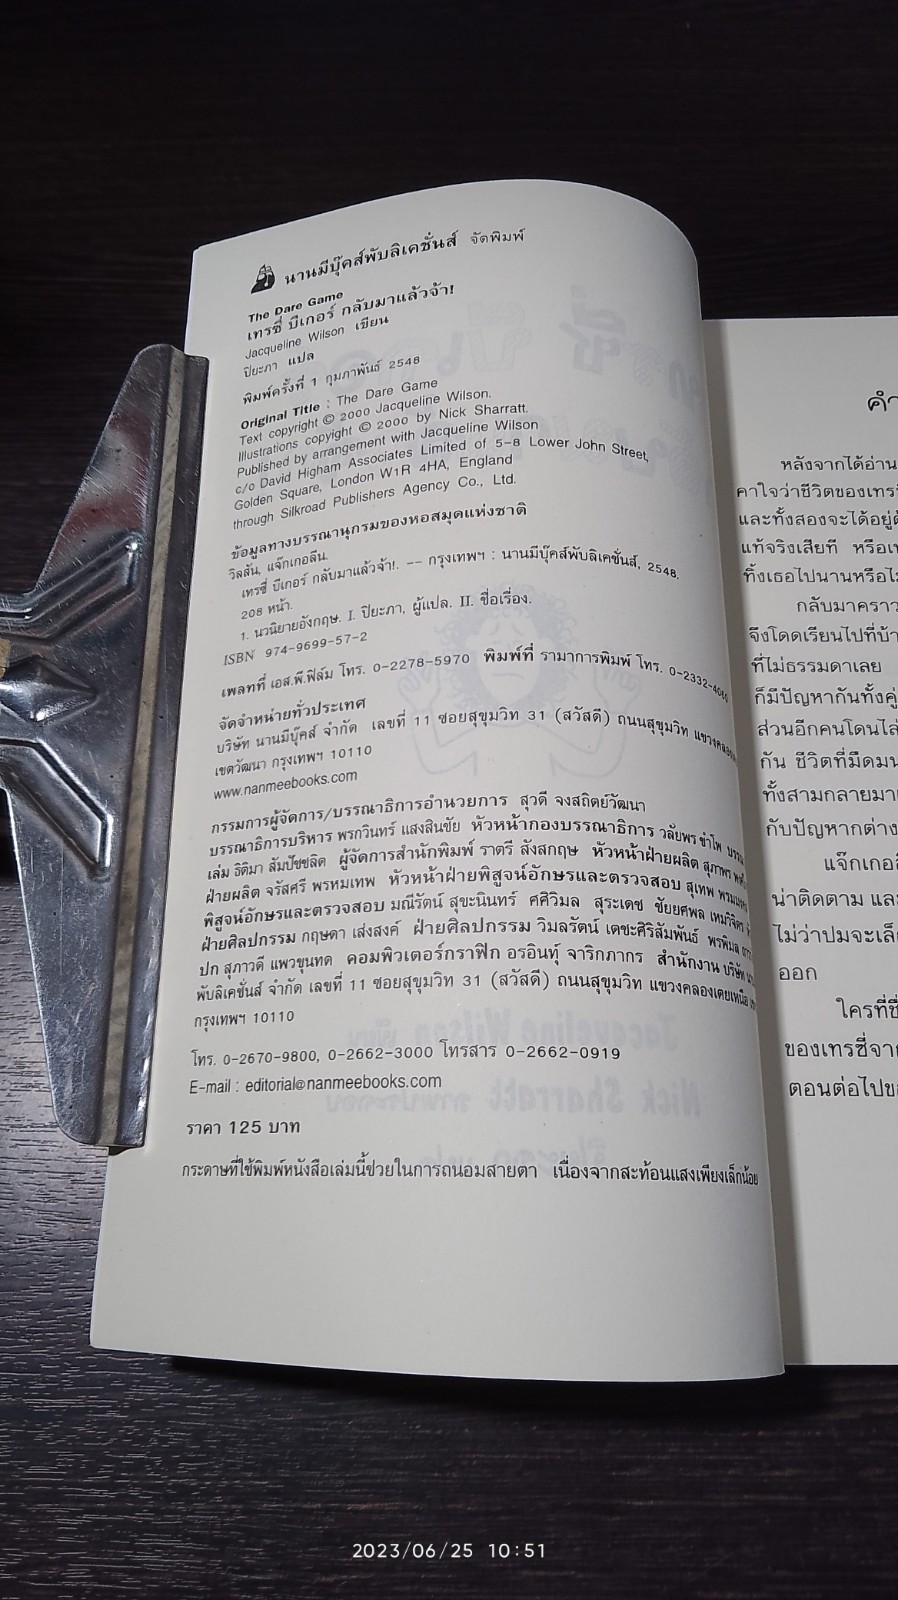 นานมีบุ๊คส์พับลิเคชั่นส์ จัดพิมพ์
The Dare Game
เทรซี่ บีเกอร์ กลับมาแล้วจ้า!
Jacqueline Wilson เขียน
ปิยะภา แปล
พิมพ์ครั้งที่ 1 กุมภาพันธ์ 2548
Original Title : The Dare Game
Text copyright © 2000 Jacqueline Wilson.
Illustrations copyight © 2000 by Nick Sharratt.
Published by arrangement with Jacqueline Wilson
c/o David Higham Associates Limited of 5-8 Lower John Street,
Golden Square, London W1R 4HA, England
through Silkroad Publishers Agency Co., Ltd.
ข้อมูลทางบรรณานุกรมของหอสมุดแห่งชาติ
วิลสัน, แจ๊กเกอลีน.
เทรซี่ บีเกอร์ กลับมาแล้วจ้า!. -- กรุงเทพฯ : นานมีบุ๊คส์พับลิเคชั่นส์, 2548.
208 หน้า.
1. นวนิยายอังกฤษ. I. ปิยะภา, ผู้แปล. II. ชื่อเรื่อง.
ISBN 974-9699-57-2
เพลทที่ เอส.พี.ฟิล์ม โทร. 0-2278-5970 พิมพ์ที่ รามาการพิมพ์ โทร. 0-2332-4060
จัดจำหน่ายทั่วประเทศ
บริษัท นานมีบุ๊คส์ จำกัด เลขที่ 11 ซอยสุขุมวิท 31 (สวัสดี) ถนนสุขุมวิท
เขตวัฒนา กรุงเทพฯ 10110
www.nanmeebooks.com
กรรมการผู้จัดการ/บรรณาธิการอำนวยการ สุวดี จงสถิตย์วัฒนา
บรรณาธิการบริหาร พรกวินทร์ แสงสินชัย หัวหน้ากองบรรณาธิการ วลัยพร ขำโพ
เล่ม ธิติมา สัมปัชชลิต ผู้จัดการสำนักพิมพ์ ราตรี สังสกฤษ หัวหน้าฝ่ายผลิต สุภาพร
ฝ่ายผลิต จรัสศรี พรหมเทพ หัวหน้าฝ่ายพิสูจน์อักษรและตรวจสอบ สุเทพ
พิสูจน์อักษรและตรวจสอบ มณีรัตน์ สุขะนินทร์ ศศิวิมล สุระเดช ชัยยศพล
ฝ่ายศิลปกรรม กฤษดา เส่งสงค์ ฝ่ายศิลปกรรม วิมลรัตน์ เตชะศิริสัมพันธ์ พรพิมล
ปก สุภาวดี แพวขุนทด คอมพิวเตอร์กราฟิก อรอินทุ์ จาริกภากร สำนักงาน บริษัท
พับลิเคชั่นส์ จำกัด เลขที่ 11 ซอยสุขุมวิท 31 (สวัสดี) ถนนสุขุมวิท แขวงคลองเตยเหนือ
กรุงเทพฯ 10110
โทร. 0-2670-9800, 0-2662-3000 โทรสาร 0-2662-0919
E-mail : editorial@nanmeebooks.com
ราคา 125 บาท
กระดาษที่ใช้พิมพ์หนังสือเล่มนี้ช่วยในการถนอมสายตา เนื่องจากสะท้อนแสงเพียงเล็กน้อย
คำ
หลังจากได้อ่าน
คาใจว่าชีวิตของเทรซี
และทั้งสองจะได้อยู่
แท้จริงเสียที หรือ
ทิ้งเธอไปนานหรือไม่
กลับมาคราว
จึงโดดเรียนไปที่บ้า
ที่ไม่ธรรมดาเลย
ก็มีปัญหากันทั้งคู่
ส่วนอีกคนโดนไล่
กัน ชีวิตที่มืดมน
ทั้งสามกลายมา
กับปัญหาต่าง
แจ๊กเกอลี
น่าติดตาม และ
ไม่ว่าปมจะเล็ก
ออก
ใครที่ชื่
ของเทรซี่จา
ตอนต่อไปขอ
2023/06/25 10:51